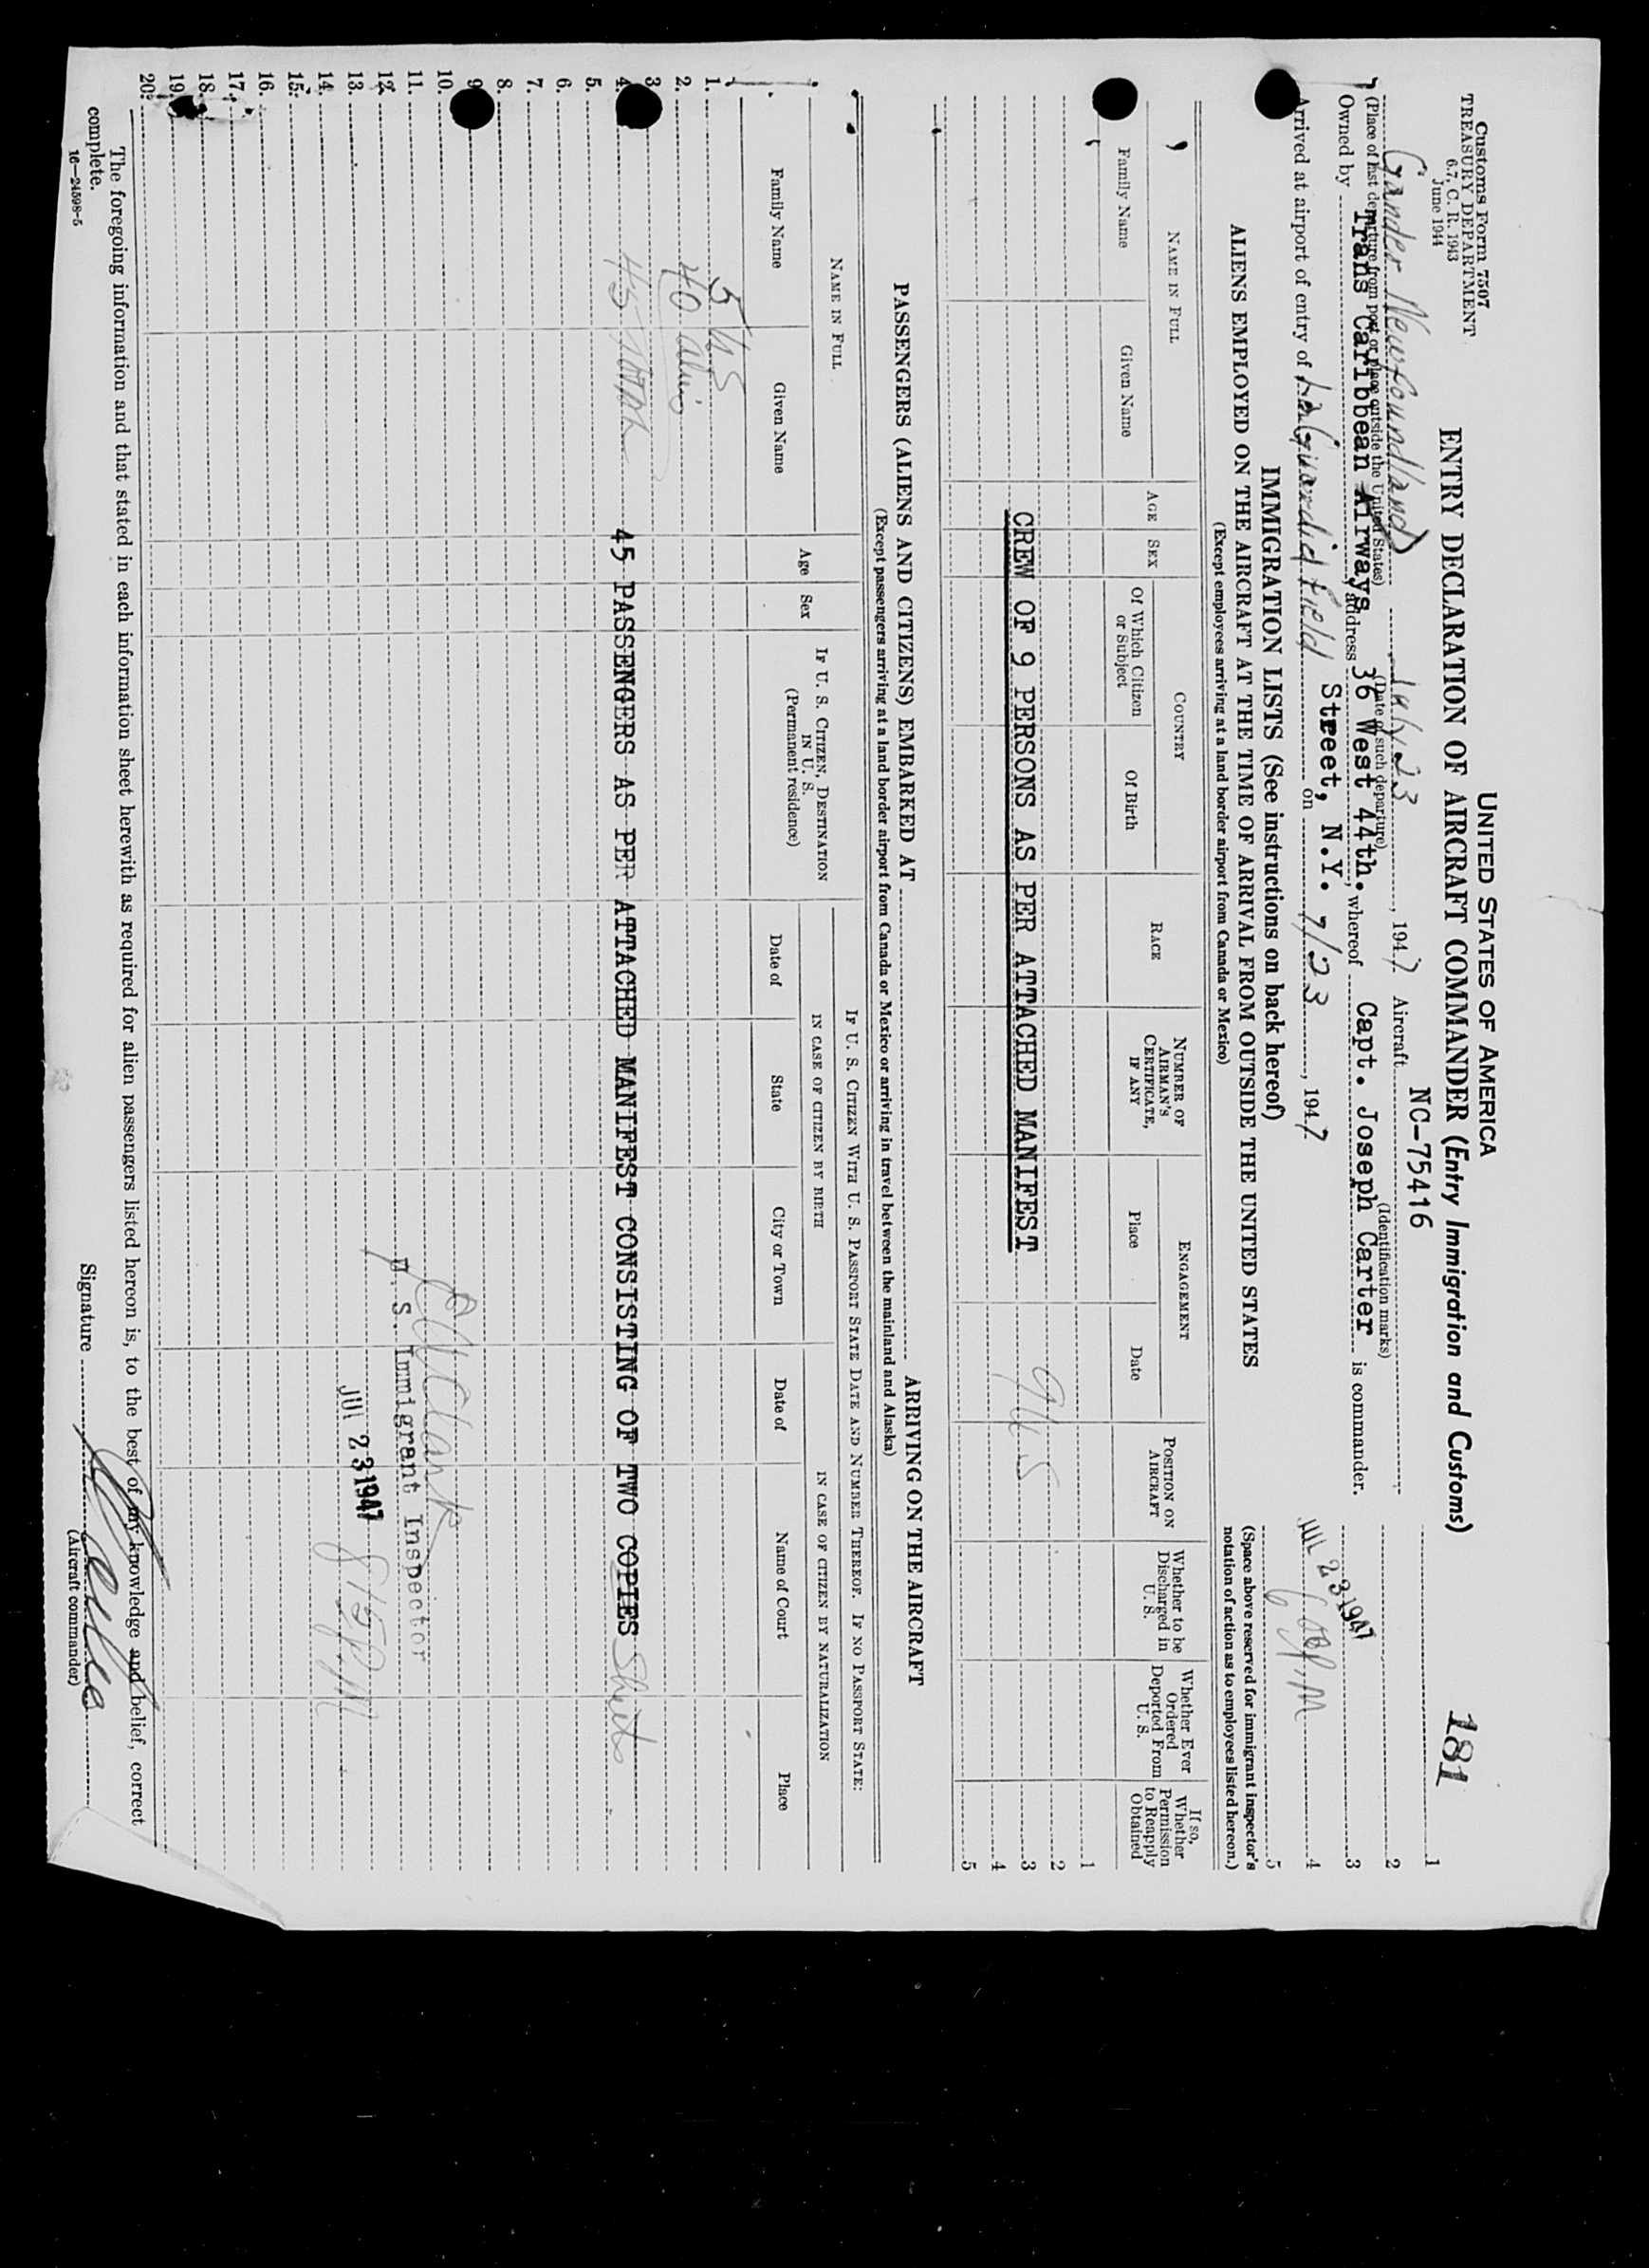 Customs Form 7507
TREASURY DEPARTMENT
6.7, C. R. 1943
June 1944
UNITED STATES OF AMERICA
ENTRY DECLARATION OF AIRCRAFT COMMANDER (Entry Immigration and Customs)
181
Gander Newfoundland July 23, 1947 Aircraft NC-75416
(Place of last departure from port or place outside the United States) (Date of such departure) (Identification marks)
Owned by Trans Caribbean Airways, address 36 West 44th. Street, N.Y., whereof Capt. Joseph Carter is commander.
Arrived at airport of entry of LaGuardia Field on 7/23, 1947
1
2
3
4
5
JUL 23 1947
(Space above reserved for immigrant inspector's
notation of action as to employees listed hereon.)
IMMIGRATION LISTS (See instructions on back hereof)
ALIENS EMPLOYED ON THE AIRCRAFT AT THE TIME OF ARRIVAL FROM OUTSIDE THE UNITED STATES
(Except employees arriving at a land border airport from Canada or Mexico)
NAME IN FULL
Family Name
Given Name
AGE
SEX
COUNTRY
Of Which Citizen or Subject
Of Birth
RACE
NUMBER OF AIRMAN'S CERTIFICATE, IF ANY
ENGAGEMENT
Place
Date
POSITION ON AIRCRAFT
Whether to be Discharged in U. S.
Whether Ever Ordered Deported From U. S.
If so, Whether Permission to Reapply Obtained
1
2
3
4
5
CREW OF 9 PERSONS AS PER ATTACHED MANIFEST
9 US
PASSENGERS (ALIENS AND CITIZENS) EMBARKED AT ARRIVING ON THE AIRCRAFT
(Except passengers arriving at a land border airport from Canada or Mexico or arriving in travel between the mainland and Alaska)
NAME IN FULL
Family Name
Given Name
Age
Sex
IF U. S. CITIZEN, DESTINATION IN U. S.
(Permanent residence)
IF U. S. CITIZEN WITH U. S. PASSPORT STATE DATE AND NUMBER THEREOF. IF NO PASSPORT STATE:
IN CASE OF CITIZEN BY BIRTH
Date of
State
City or Town
IN CASE OF CITIZEN BY NATURALIZATION
Date of
Name of Court
Place
1. 5 US
2. 40 alins
3.
4. 45 TOTAL 45 PASSENGERS AS PER ATTACHED MANIFEST CONSISTING OF TWO COPIES Sheets
5.
6.
7.
8.
9.
10.
11.
12. U. S. Immigrant Inspector
13. JUL 23 1947
14. 815 P.M
15.
16.
17.
18.
19.
20.
The foregoing information and that stated in each information sheet herewith as required for alien passengers listed hereon is, to the best of my knowledge and belief, correct
complete.
Signature
(Aircraft commander)
16—24598-5